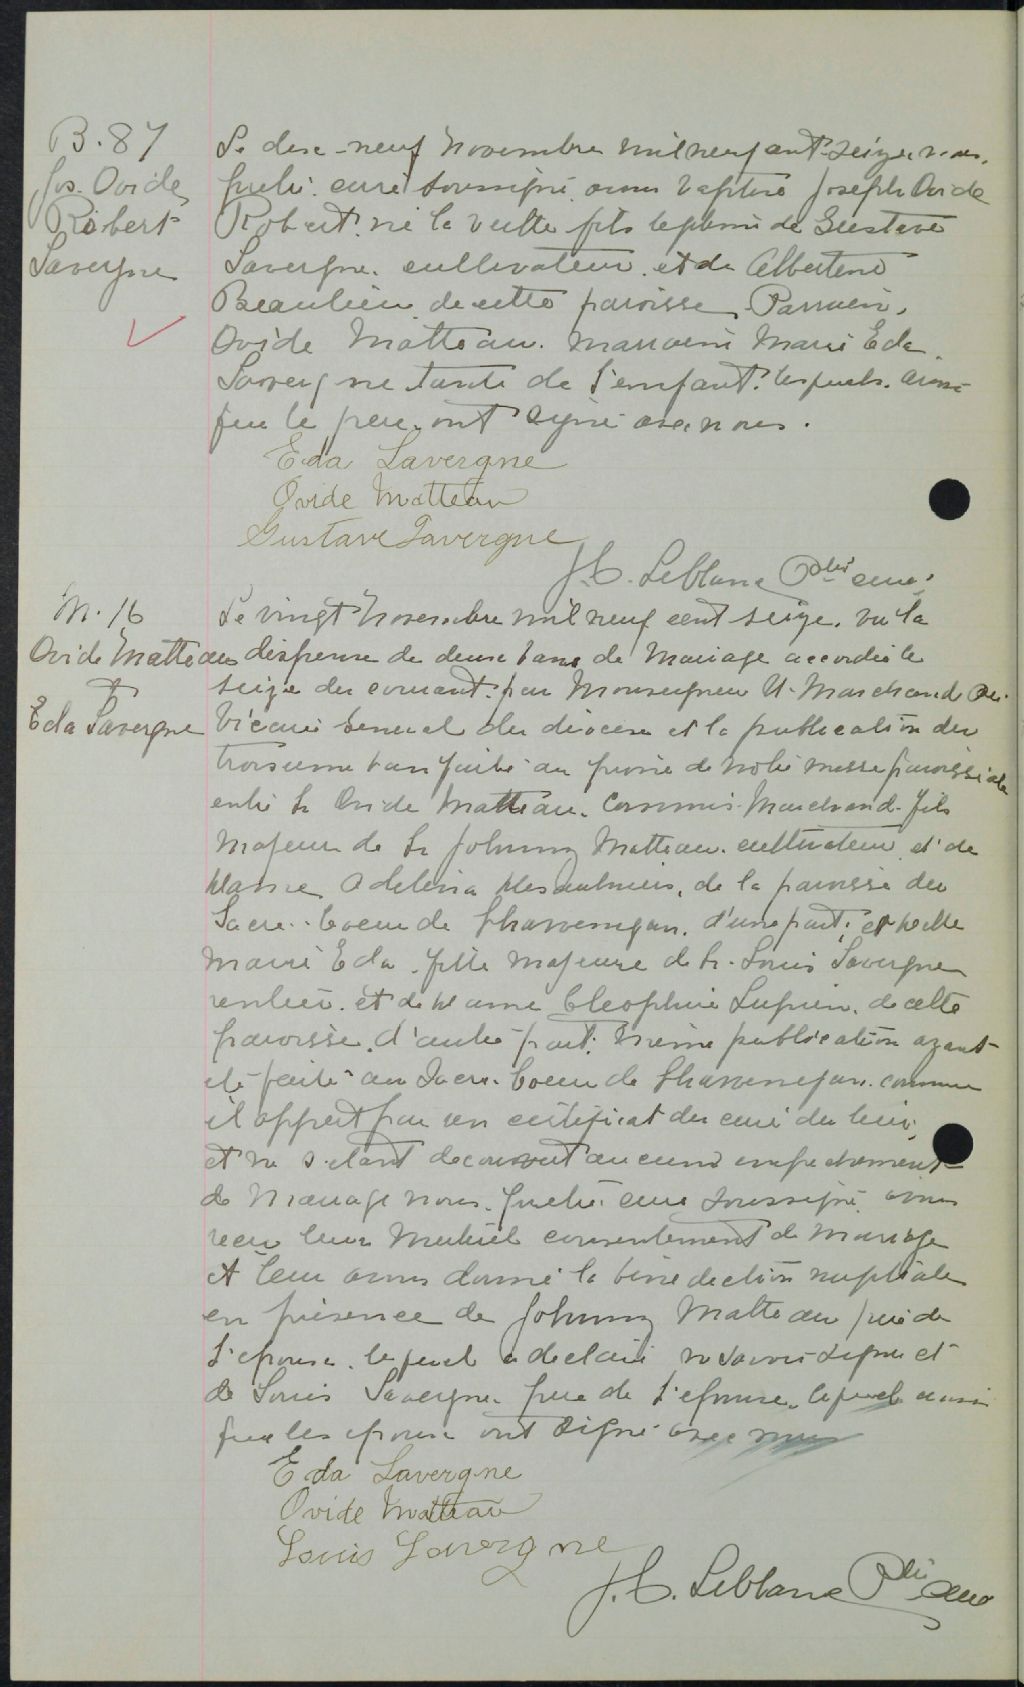 B. 87
Jos. Ovide
Robert
Lavergne
Le dix-neuf Novembre mil neuf cent seize, nous,
prêtre curé soussigné avons baptisé Joseph Ovide
Robert, né la veille fils légitime de Gustave
Lavergne, cultivateur, et de Albertine
Beaulieu, de cette paroisse. Parrain,
Ovide Matteau. marraine Marie Eda
Lavergne tante de l'enfant. lesquels ainsi
que le père ont signé avec nous.
Eda Lavergne
Ovide Matteau
Gustave Lavergne
J. C. Leblanc Ptre curé
M. 16
Ovide Matteau
&
Eda Lavergne
Le vingt Novembre mil neuf cent seize, vu la
dispense de deux bans de Mariage accordée le
seize du courant par Monseigneur U. Marchand
Vicaire Général du diocèse et la publication du
troisième ban faite au prône de notre messe paroissiale
entre Sr Ovide Matteau, Commis-Marchand, fils
majeur de Sr Johnny Matteau, cultivateur, et de
Dame Adelina Desaulniers, de la paroisse du
Sacré-Coeur de Shawenegan, d'une part; et Delle
Marie Eda, fille majeure de Sr. Louis Lavergne
rentier, et de Dame Cléophire Lupien, de cette
paroisse, d'autre part; même publication ayant
été faite au Sacré-Coeur de Shawenegan, comme
il appert par un certificat du curé du lieu,
et ne s'étant découvert aucun empêchement
de Mariage nous, prêtre curé soussigné, avons
reçu leur Mutuel consentement de mariage
et leur avons donné la bénédiction nuptiale
en présence de Johnny Matteau père de
l'époux, lequel a déclaré ne savoir signer et
de Louis Lavergne père de l'épouse, lequel ainsi
que les époux ont signé avec nous
Eda Lavergne
Ovide Matteau
Louis Lavergne
J. C. Leblanc Ptre curé